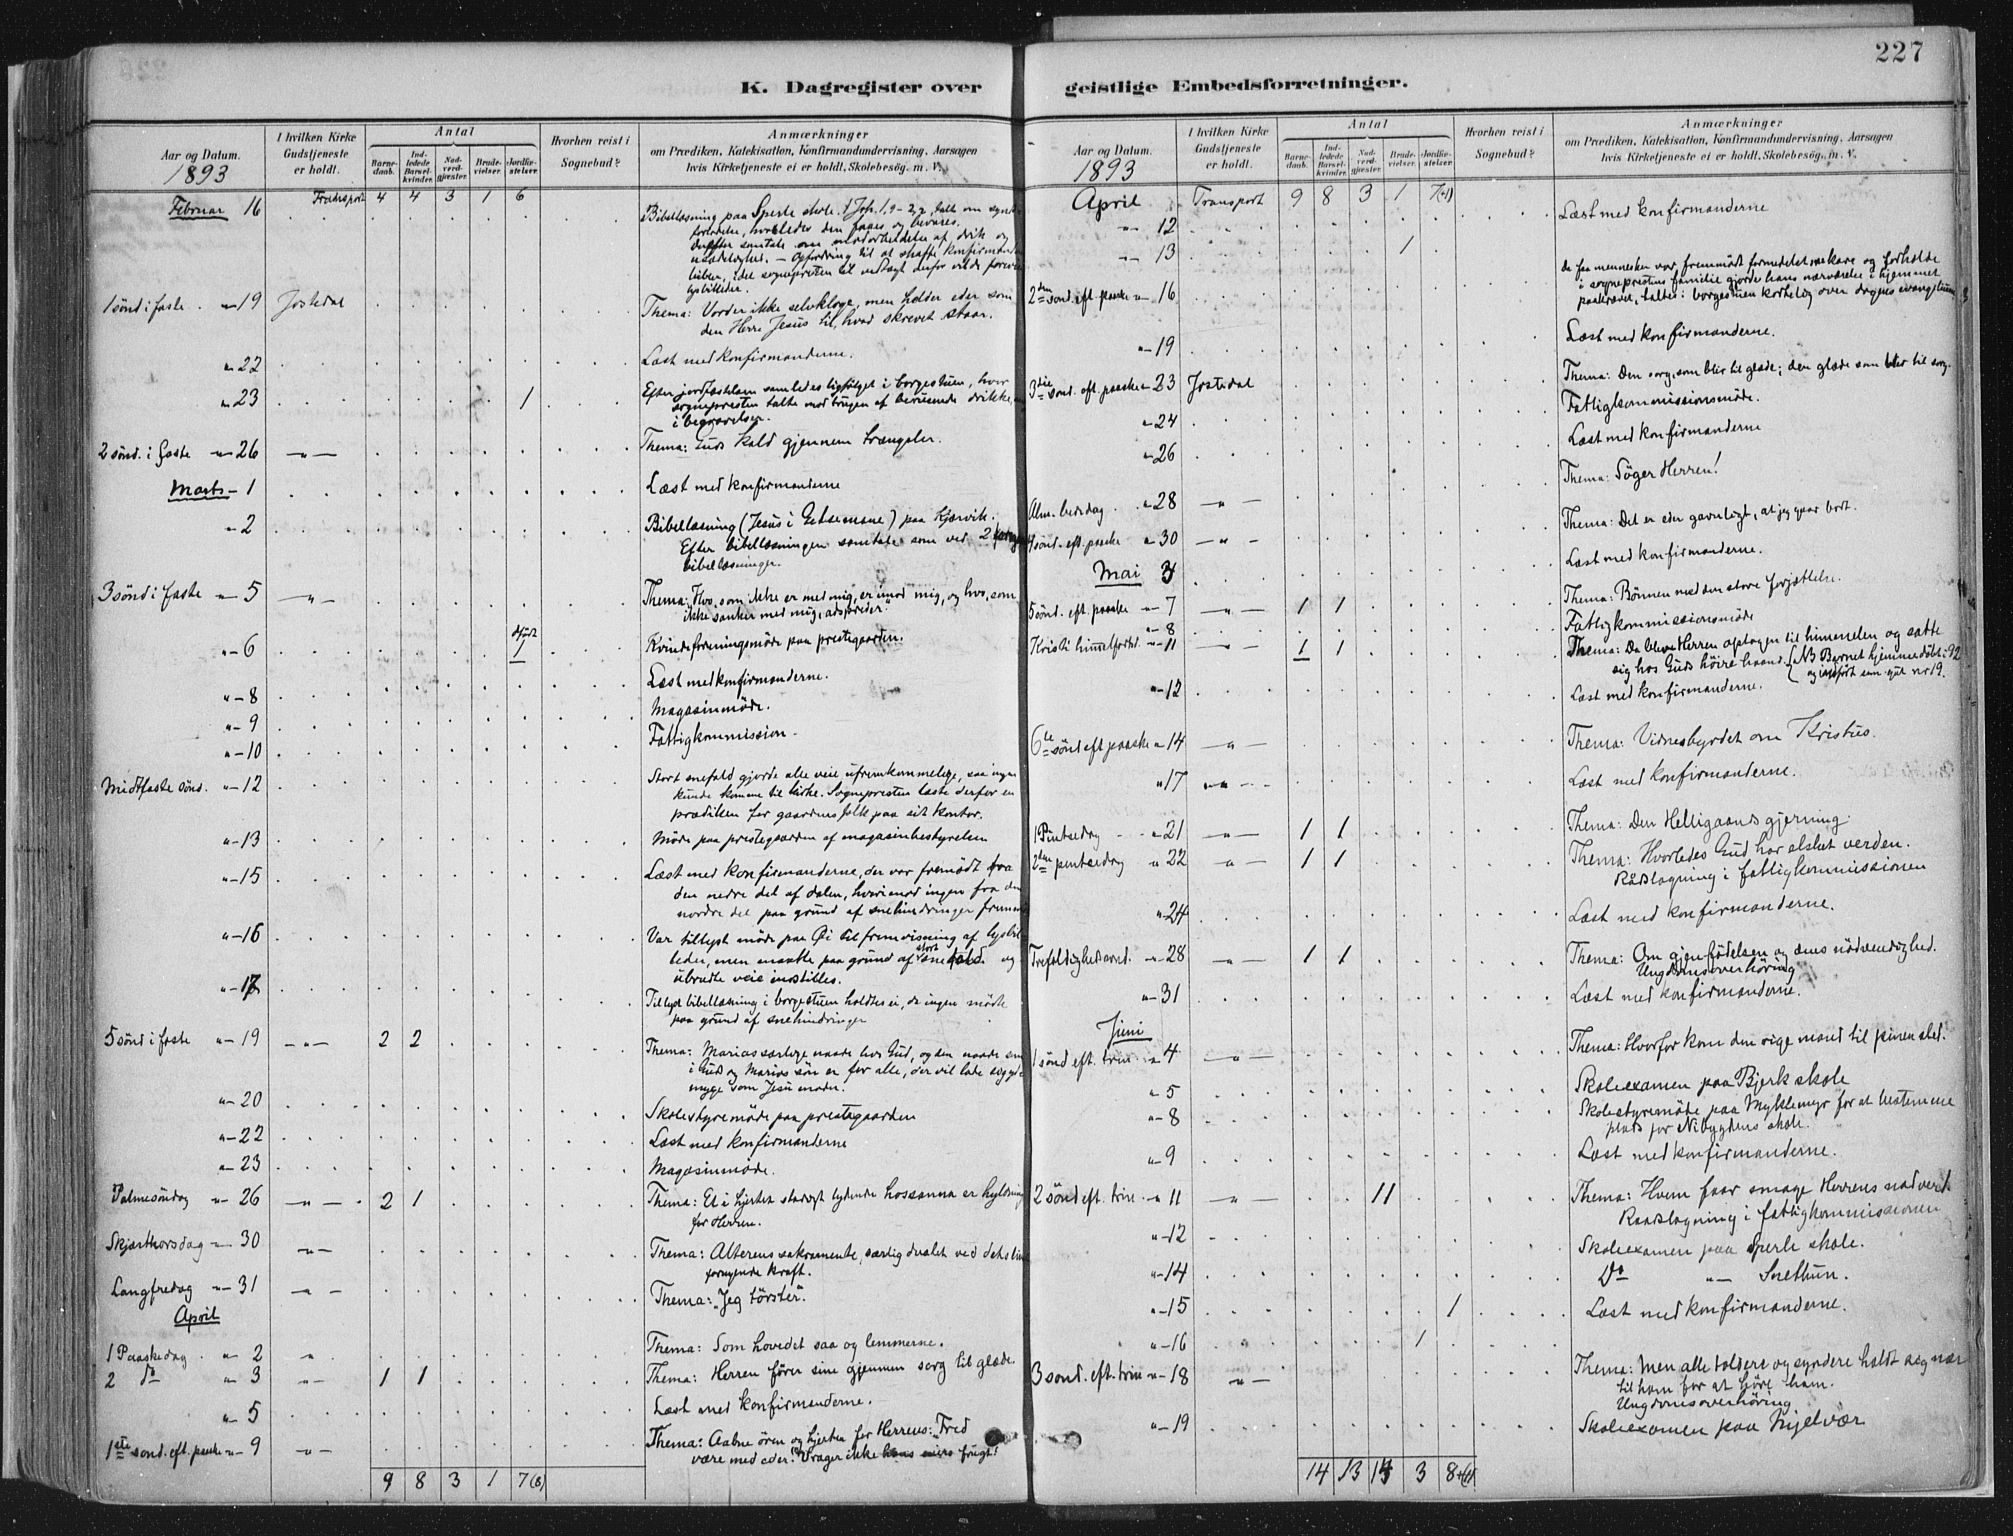 227
K. Dagregister over
Aar og Datum.
1893
I hvilken Kirke
Gudstjeneste
er holdt.
Antal
Barne-
daab.
Ind-
ledede
Barsel-
kvinder.
Nad-
verd-
gjæster.
Brude-
vielser.
Jordfæ-
stelser.
Hvorhen reist i
Sognebud?
Anmærkninger
om Prædiken, Katekisation, Konfirmandundervisning, Aarsagen
hvis Kirketjeneste ei er holdt, Skolebesøg. m. V.
Februar 16 Transport 4 4 3 1 6 Bibellæsning paa Sperle skole. 1 Joh. 1,9-2,2, talt om synds
forladelse, hvorledes den faaes og bevares.
Derefter samtale om modarbeidelse af drik og
usædelighed. - Opfordring til at skaffe konfirmand
bibler, idet sognepresten til vederlag derfor vilde forevise
lysbilleder.
1 sönd i faste " 19 Jostedal Thema: Vorder ikke selvkloge, men holder eder som
den Herre Jesus til, hvad skrevet staar.
" 22 Læst med konfirmanderne.
" 23 1 Efter jordfæstelsen samledes ligfølget i borgestuen, hvor
sognepresten talte mod brugen af berusende drikke
i begravelser.
2 sönd. i faste " 26 " Thema: Guds kald gjennem trængsler.
Marts - 1 Læst med konfirmanderne
" 2 Bibellæsning (Jesus i Getsemane) paa Kjærvik.
Efter bibellæsningen samtale som ved 2
bibellæsninger.
3 sönd i faste " 5 " Thema: "Hvo, som ikke er med mig, er imod mig, og hvo, som
ikke sanker med mig, adspreder"
" 6 1 Kvindeforeningsmöde paa prestegaarden.
" 8 Læst med konfirmanderne.
" 9 Magasinmöde.
" 10 Fattigkommission
Midtfaste sönd. " 12 Stort snefald gjorde alle veie ufremkommelige, saa ingen
kunde komme til kirke. Sognepresten læste derfor en
prædiken for gaardens folk paa sit kontor.
" 13 Möde paa prestegaarden af magasinbestyrelsen
" 15 Læst med konfirmanderne, der var fremödt fra
den nedre del af dalen, hvorimod ingen fra den
nordre del paa grund af snehindringer
" 16 Var tillyst möde paa Öi til fremvisning af lysbil
leder, men maatte paa grund af stort snefald og
ubrudte veie indstilles.
" 17 Tillyst bibellæsning i borgestuen holdtes ei, da ingen mödte
paa grund af snehindringer
5 sönd i faste " 19 " 2 2 Thema: Marias særlige naade hos Gud, og den naade som
i Guds og Marias sön er for alle, der vil lade sig yd-
myge som Jesu moder.
" 20 Skolestyremöde paa prestegaarden
" 22 Læst med konfirmanderne
" 23 Magasinmöde.
Palmesöndag " 26 " 2 1 Thema: Et i hjertet stadigt lydende hosianna er hyldning
for Herren.
Skjærthorsdag " 30 " Thema: Alterens sakramente, særlig dvælet ved dets
fornyende kraft.
Langfredag " 31 " Thema: "Jeg törster".
April
1 Paaskedag " 2 " Thema: Som hovedet saa og lemmerne.
2 do " 3 " 1 1 Thema: Herren förer sine gjennem sorg til glæde.
" 5 Læst med konfirmanderne.
1ste sönd. eft. paaske " 9 " Thema: Aabne ören og hjerter for Herrens: "Fred
være med eder! Vrager ikke hans seiers frugt!
9 8 3 1 7(8)
geistlige Embedsforretninger.
Aar og Datum.
1893
I hvilken Kirke
Gudstjeneste
er holdt.
Antal
Barne-
daab.
Ind-
ledede
Barsel-
kvinder.
Nad-
verd-
gjæster.
Brude-
vielser.
Jordfæ-
stelser.
Hvorhen reist i
Sognebud?
Anmærkninger
om Prædiken, Katekisation, Konfirmandundervisning, Aarsagen
hvis Kirketjeneste ei er holdt, Skolebesøg. m. V.
April Transport 9 8 3 1 7(+1)
" 12 Læst med konfirmanderne
" 13 1
2den sönd eft. paaske " 16 da faa mennesker var fremmödt formedelst veikare og forholde
i sogneprestens familie gjorde hans nærværelse i hjemmet
paakrævet, taltes i borgestuen kortelig over dagens evangelium
" 19 Læst med konfirmanderne.
3die sönd. eft. paaske " 23 Jostedal Thema: Den sorg, som blir til glæde; den glæde som blir til sorg.
" 24 Fattigkommissionsmöde.
" 26 Læst med konfirmanderne
Alm. bededag " 28 " Thema: Söger Herren!
4 sönd. eft. paaske " 30 " Thema: Det er eder gavnligt, at jeg gaar bort.
Mai 3 Læst med konfirmanderne.
5 sönd. eft. paaske " 7 " 1 1 Thema: Bönnen med den store forjættelse.
" 8 Fattigkommissionsmöde
Kristi himmelfartsd. " 11 " 1 1 Thema: Da blev Herren optagen til himmelen og satte
sig hos Guds höire haand. (NB Barnet hjemmedöbt i 92
og indfört som sjut nr 19.
" 12 Læst med konfirmanderne.
6te sönd eft paaske " 14 " Thema: Vidnesbyrdet om Kristus.
" 17 " Læst med konfirmanderne.
1 Pintsedag " 21 " 1 1 Thema: Den Helligaands gjerning.
2den pintsedag " 22 " 1 1 Thema: Hvorledes Gud har elsket verden.
Raadslagning i fattigkommissionen
" 24 Læst med konfirmanderne.
Trefoldigheds sönd. " 28 " 1 1 Thema: Om gjenfödelsen og dens nödvendighed.
Ungdomsoverhöring
" 31 Læst med konfirmanderne.
Juni
1 sönd eft. trin " 4 " Thema: Hvorfor kom den rige mand til pinens sted.
" 5 Skoleexamen paa Bjerk skole
" 8 Skolestyremöte paa Myklemyr for at bestemme
plads for Nibygdens skole.
" 9 Læst med konfirmanderne.
2 sönd eft. trin. " 11 " 11 Thema: Hvem faar smage Herrens nadverd.
Raadslagning i fattigkommissionen
" 12 Skoleexamen paa Sperle skole.
" 14 Do " Snethun.
" 15 1 Læst med konfirmanderne.
" 16 1
3 sönd. eft. trin " 18 " Thema: Men alle toldere og syndere holdt sig nær
til ham for at höre ham.
Ungdomsoverhöring
" 19 Skoleexamen paa Mjelvær
14 13 14 3 8+(1)